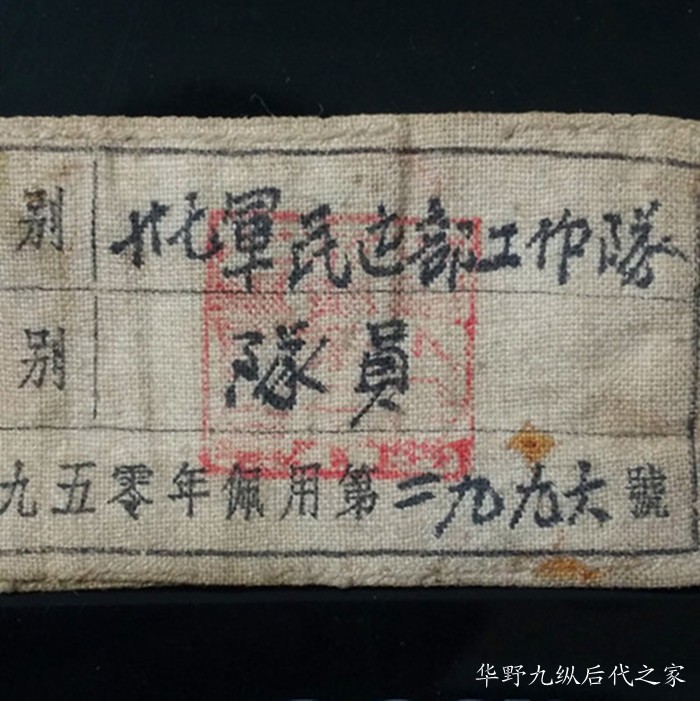 别 廿七軍民运部工作隊
别 隊員
九五零年佩用第二九九六號
华野九纵后代之家